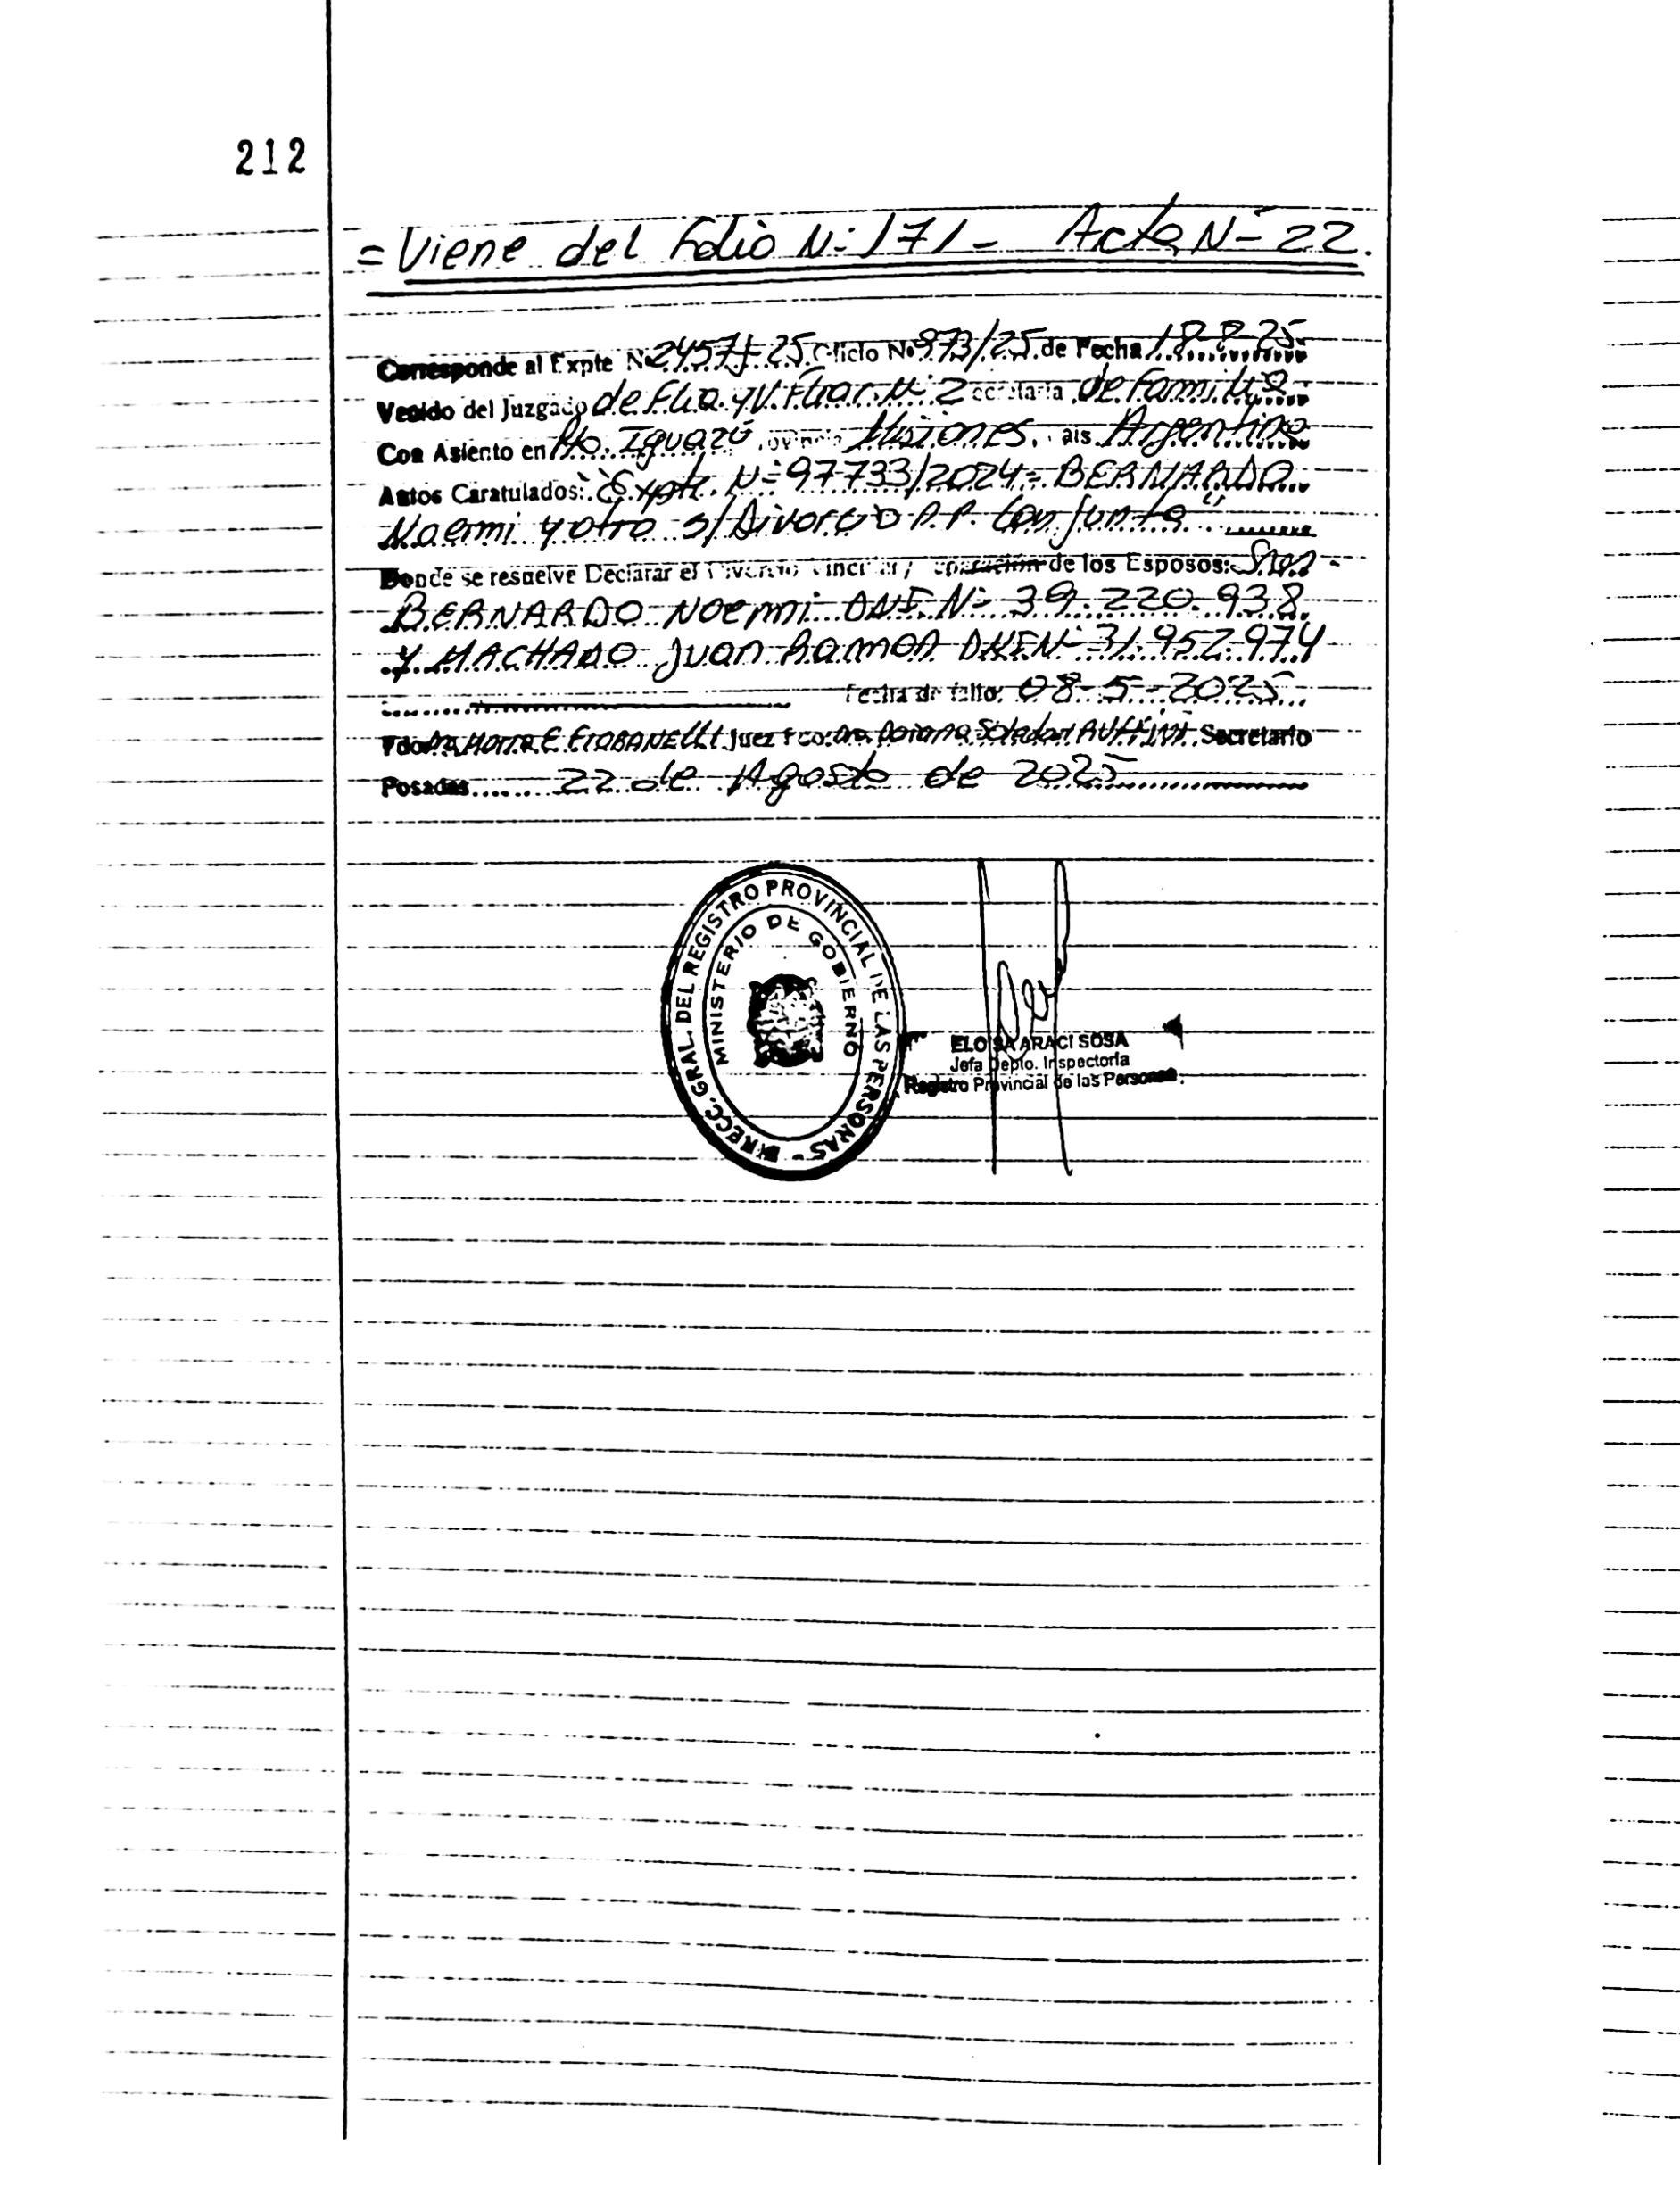 212
= Viene del Folio N: 171 - Acta N- 22.
Corresponde al Expte N. 2457J-25 Oficio No 973/25 de Fecha 18-8-25
Venido del Juzgado de Flia. y V. Fliar. N: 2 Secretaria de Familia
Con Asiento en Pto. Iguazú Provincia Misiones. Pais Argentina
Autos Caratulados: "Expte. N: 97733/2024 - BERNARDO
Noemi y otro s/ Divorcio P.P. Conjunta"
Donde se resuelve Declarar el Divorcio Vincular / Separación de los Esposos: Sres -
BERNARDO Noemi DNI. N: 39.220.938
y MACHADO Juan Ramon DNI N: 31.952.974
Fecha de fallo: 08-5-2025
Fdo. E. Juez Fdo. Dra. Soledad Secretario
Posadas 22 de Agosto de 2025
DIRECC. GRAL. DEL REGISTRO PROVINCIAL DE LAS PERSONAS -
MINISTERIO DE GOBIERNO
ELOISA ARACI SOSA
Jefa Depto. Inspectoría
Registro Provincial de las Personas